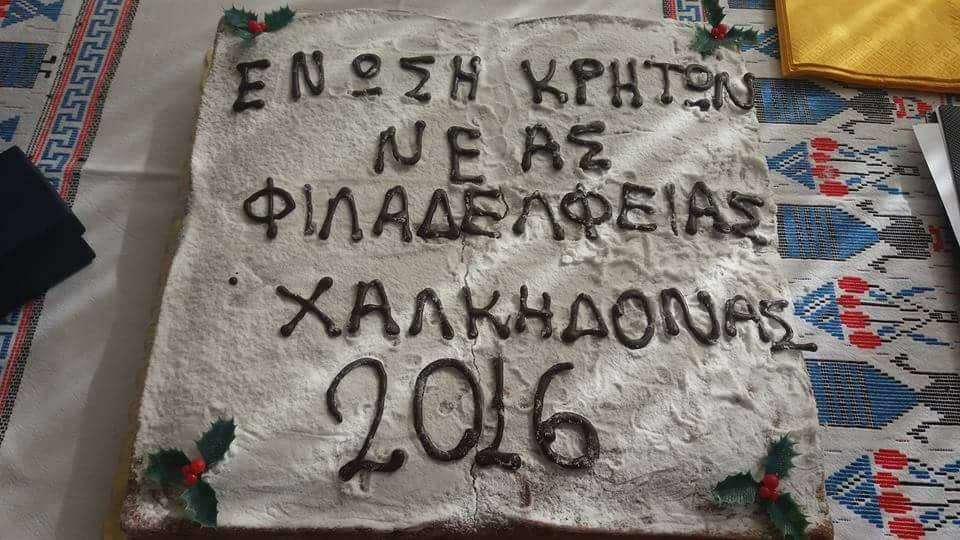 ΕΝΩΣΗ ΚΡΗΤΩΝ
ΝΕΑΣ
ΦΙΛΑΔΕΛΦΕΙΑΣ
ΧΑΛΚΗΔΟΝΑΣ
2016